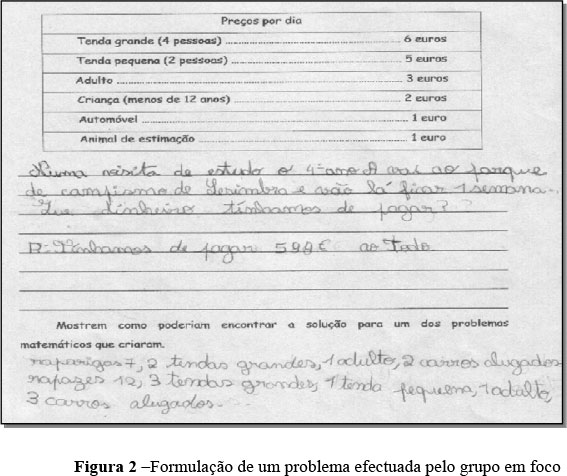 Preços por dia
Tenda grande (4 pessoas) 6 euros
Tenda pequena (2 pessoas) 5 euros
Adulto 3 euros
Criança (menos de 12 anos) 2 euros
Automóvel 1 euro
Animal de estimação 1 euro
Numa visita de estudo o 4º ano A vai ao parque
de campismo de Sesimbra e vão lá ficar 1 semana.
Que dinheiro tínhamos de pagar?
R: Tínhamos de pagar € ao Todo
Mostrem como poderiam encontrar a solução para um dos problemas
matemáticos que criaram.
raparigas 7, 2 tendas grandes, 1 adulto, 2 carros alugados
rapazes 12, 3 tendas grandes, 1 tenda pequena, 1 adulto,
3 carros alugados.
Figura 2 –Formulação de um problema efectuada pelo grupo em foco